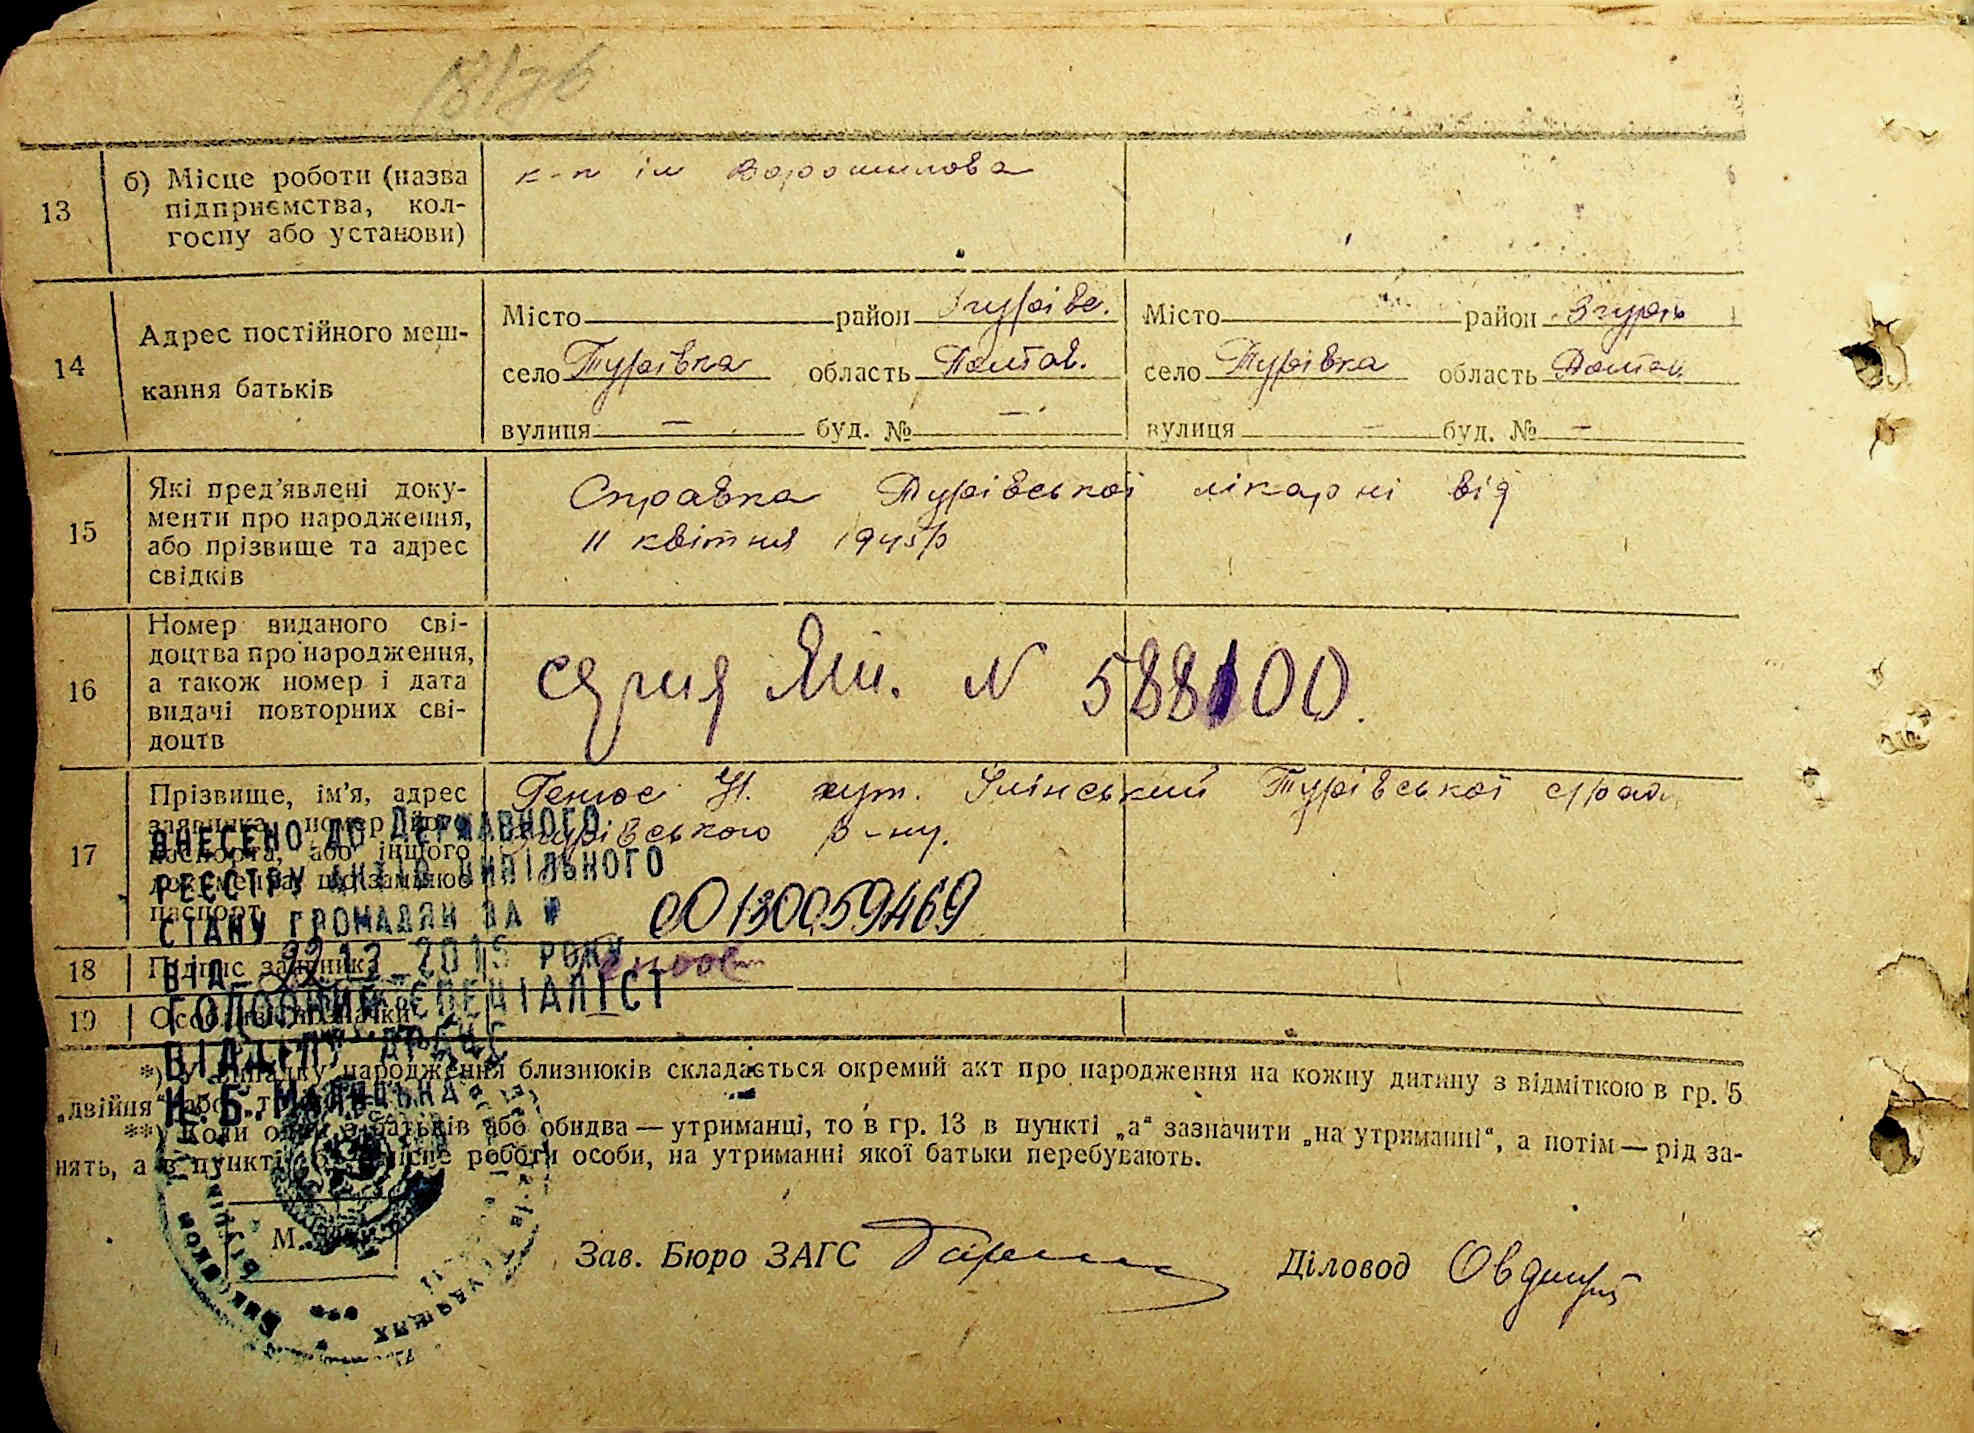 13
б) Місце роботи (назва
підприємства, кол-
госпу або установи)
к-п ім Ворошилова
14
Адрес постійного меш-
кання батьків
Місто район Згурівс.
село Турівка область Полтав.
вулиця — буд. № —
Місто район Згурів
село Турівка область Полтав
вулиця — буд. № —
15
Які пред'явлені доку-
менти про народження,
або прізвище та адрес
свідків
Справка Турівської лікарні від
11 квітня 1945р
16
Номер виданого сві-
доцтва про народження,
а також номер і дата
видачі повторних сві-
доцтв
N 588100.
17
Прізвище, ім'я, адрес
заявника, номер його
паспорта, або іншого
документа, що замінює
паспорт
хут. Турівської сільради
Згурівського р-ну.
ВНЕСЕНО ДО ДЕРЖАВНОГО
РЕЄСТРУ АКТІВ ЦИВІЛЬНОГО
СТАНУ ГРОМАДЯН ЗА №
00130059469
ВІД 22 12 2015 РОКУ
ГОЛОВНИЙ СПЕЦІАЛІСТ
ВІДДІЛУ ДРАЦС
18
Підпис заявника
19
Особливі позначки
*) У випадку народження близнюків складається окремий акт про народження на кожну дитину з відміткою в гр. 5
„двійня" або
**) Коли один з батьків або обидва — утриманці, то в гр. 13 в пункті „а" зазначити „на утриманні", а потім — рід за-
нять, а в пункті місце роботи особи, на утриманні якої батьки перебувають.
М.
Зав. Бюро ЗАГС
Діловод